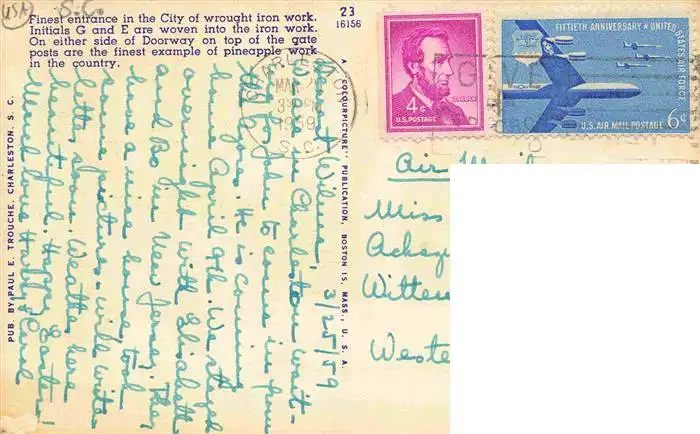 USA
S.C.
Finest entrance in the City of wrought iron work.
Initials G and E are woven into the iron work.
On either side of Doorway on top of the gate
posts are the finest example of pineapple work
in the country.
23
16156
A "COLOURPICTURE" PUBLICATION, BOSTON 15, MASS., U. S. A.
PUB. BY PAUL E. TROUCHE, CHARLESTON, S. C.
CHARLESTON
MAR
1959
S.C.
4¢
LINCOLN
U.S. POSTAGE
FIFTIETH ANNIVERSARY · UNITED STATES AIR FORCE
U.S. AIR MAIL POSTAGE 6¢
3/25/59
Wilma
We are in Charleston wait-
for John to come in from
He is coming
home April 9th. We stayed
overnight with Elizabeth
and Bo in New Jersey. They
have a nice house, took
some pictures - will write
letter soon. Weather here
beautiful. Happy Easter!
Love Harry & Carol
Air Mail
Miss
Witte
Weste